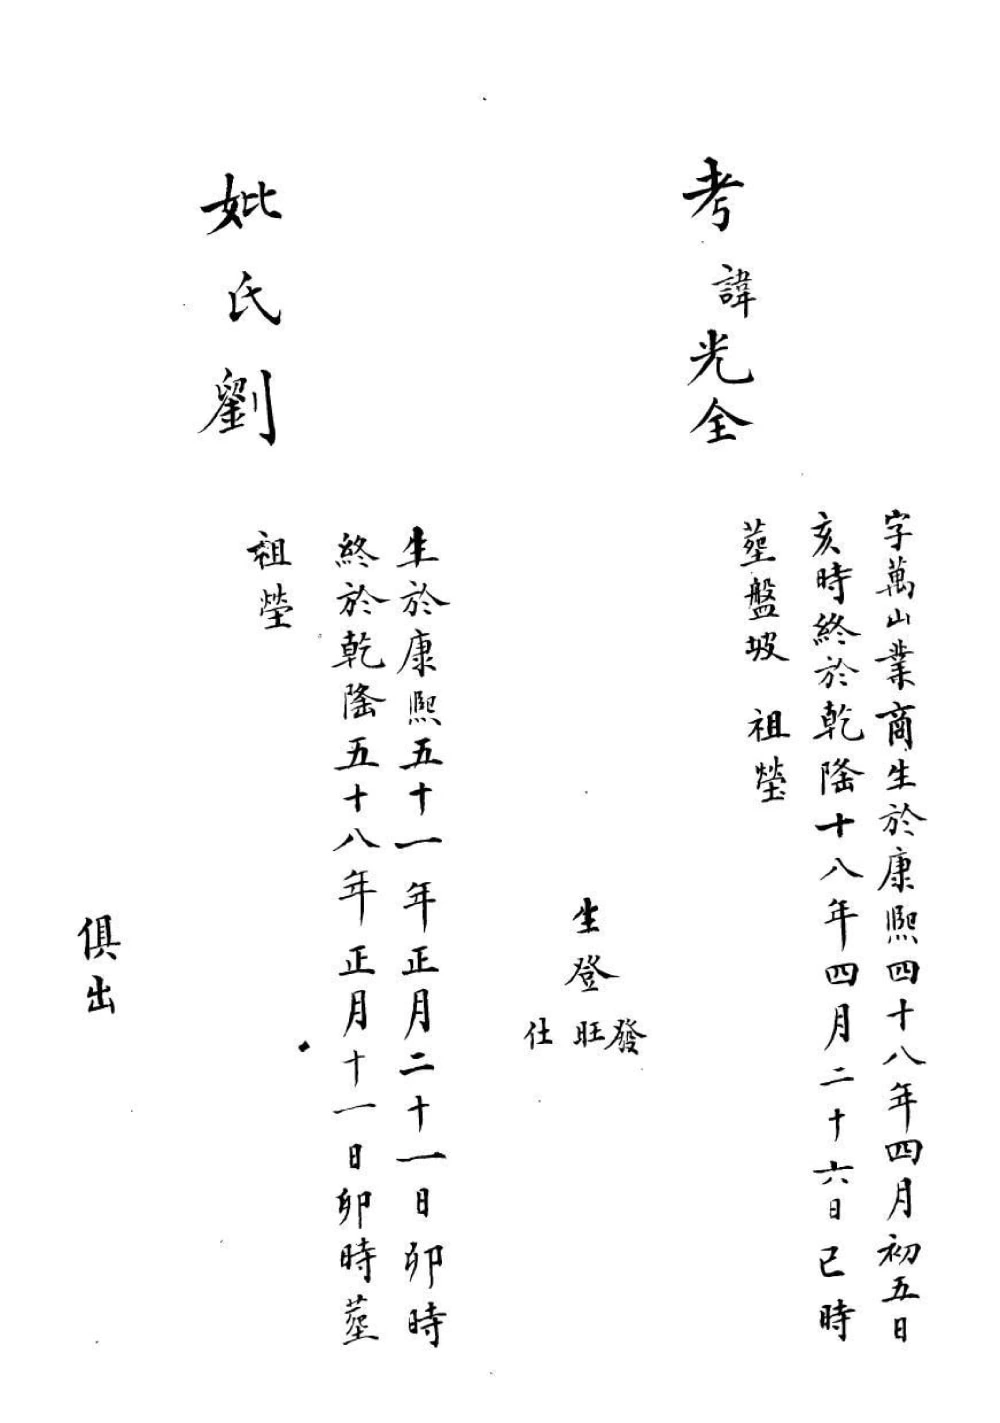 考諱光全
字萬山業商生於康熙四十八年四月初五日
亥時終於乾隆十八年四月二十六日巳時
塟盤坡 祖塋
生登
發
旺
仕
妣氏劉
生於康熙五十一年正月二十一日卯時
終於乾隆五十八年正月十一日卯時塟
祖塋
俱出